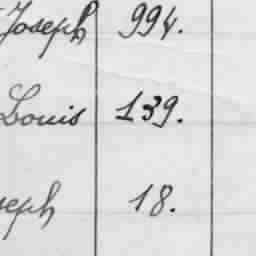 Joseph 994.
Louis 139.
seph 18.